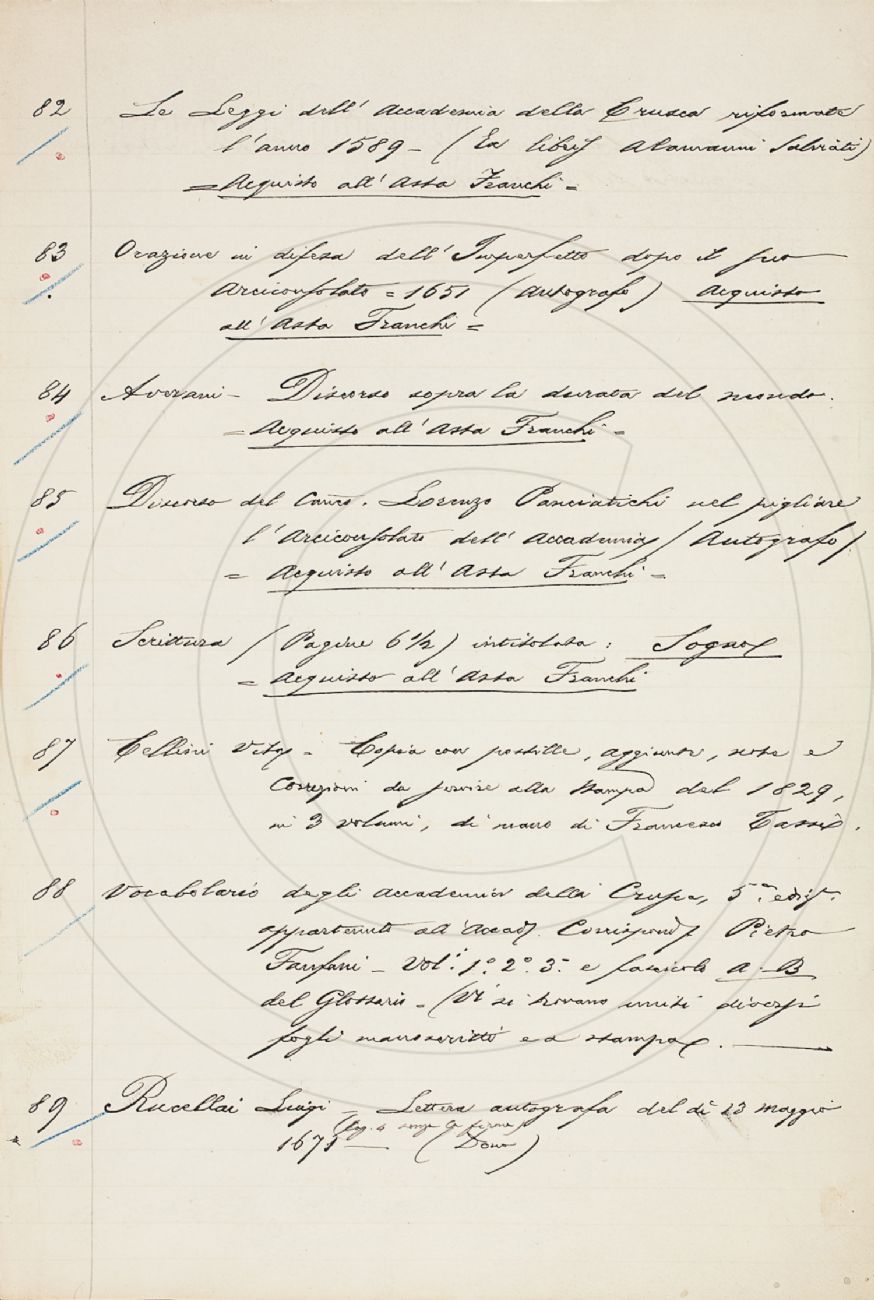 82 Le Leggi dell' Accademia della Crusca riformate
l'anno 1589 - (Ex libris Alamanni Salviati)
= Acquisto all' Asta Franchi =
83 Orazione in difesa dell' Imperfetto dopo il suo
Arciconsolato = 1651 (Autografo) Acquisto
all' Asta Franchi =
84 Averani - Discorso sopra la durata del mondo.
= Acquisto all' Asta Franchi =
85 Discorso del Canco. Lorenzo Panciatichi nel pigliare
l'Arciconsolato dell' Accademia (Autografo)
= Acquisto all' Asta Franchi =
86 Scrittura (Pagine 6 1/2) intitolata: Sogno
= Acquisto all' Asta Franchi
87 Cellini Vita - Copia con postille, aggiunte, note e
Correzioni da servire alla stampa del 1829,
in 3 volumi, di mano di Francesco Tassi.
88 Vocabolario degli Accademici della Crusca, 5ª ediz.
appartenuto all'Accad. Corrispond. Pietro
Fanfani - Vol. 1º 2º 3º e fascicolo A-B
del Glossario - (Vi si trovano uniti diversi
fogli manoscritti e a stampa.
89 Rucellai Luigi - Lettera autografa del dì 23 maggio
1671 - (Dono)
senza la firma